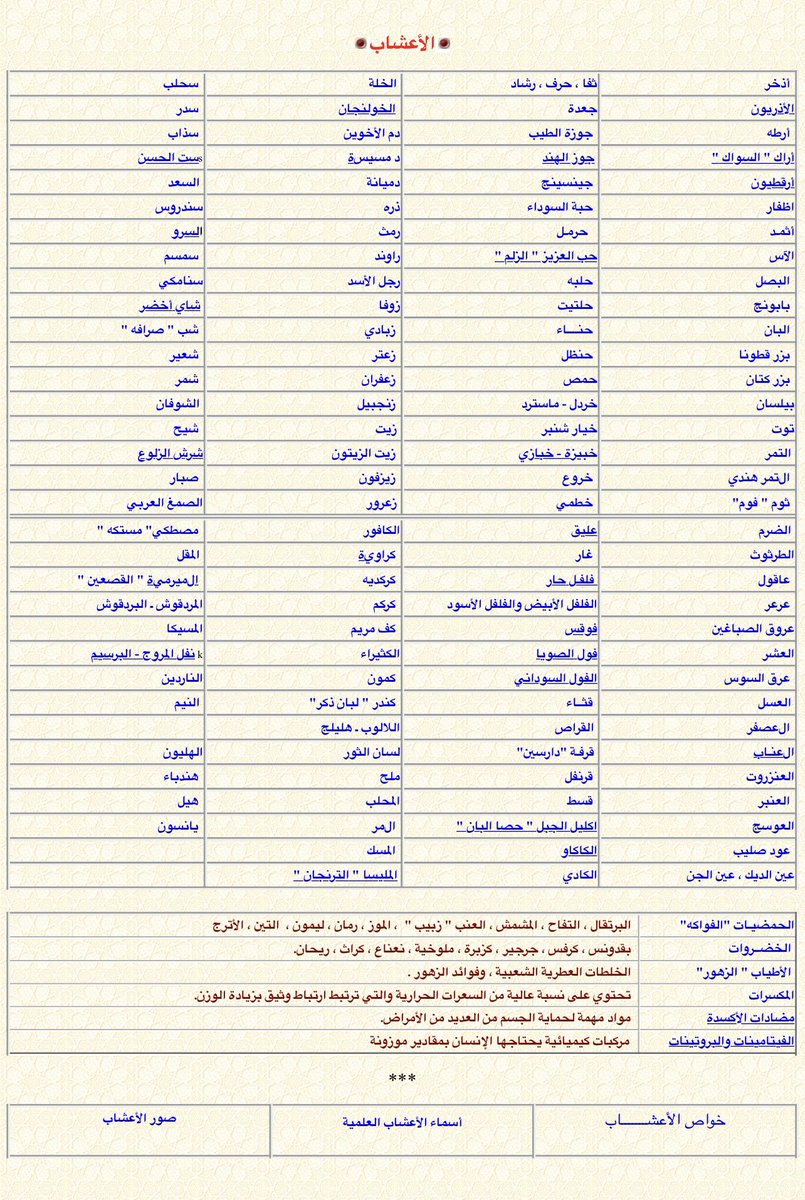 الأعشاب
أذخر ثفا ، حرف ، رشاد الخلة سحلب
الأذريون جعدة الخولنجان سدر
أرطه جوزة الطيب دم الأخوين سذاب
أراك " السواك " جوز الهند د مسيسة sست الحسن
أرقطيون جينسينج دميانة السعد
اظفار حبة السوداء ذره سندروس
أثمـد حرمـل رمث السرو
الآس حب العزيز " الزلم " راوند سمسم
البصل حلبه رجل الأسد سنامكي
بابونج حلتيت زوفا شاي أخضر
البان حنــــاء زبادي شب " صرافه "
بزر قطونا حنظل زعتر شعير
بزر كتان حمص زعفران شمر
بيلسان خردل - ماستارد زنجبيل الشوفان
توت خيار شنبر زيت شيح
التمر خبيزة - خبازي زيت الزيتون شرش الزلوع
التمر هندي خروع زيزفون صبار
ثوم " فوم" خطمي زعرور الصمغ العربي
الضرم عليق الكافور مصطكي" مستكه "
الطرثوث غار كراوية المقل
عاقول فلفـل حار كركديه الميرمية " القصعين "
عرعر الفلفل الأبيض والفلفل الأسود كركم المردقوش ـ البردقوش
عروق الصباغين فوقس كف مريم المسيكا
العشر فول الصويا الكثيراء k نفل المروج - البرسيم
عرق السوس الفول السوداني كمون الناردين
العسل قثـاء كندر " لبان ذكر" النيم
العصفر القراص اللالوب ـ هليلج
العنـاب قرفـة "دارسين" لسان الثور الهليون
العنزروت قرنفل ملح هندباء
العنبر قسط المحلب هيل
العوسج اكليل الجبل " حصا البان " المر يانسون
عود صليب الكاكاو المسك
عين الديك ، عين الجن الكادي المليسا " الترنجان "
الحمضيـات "الفواكه" البرتقال ، التفاح ، المشمش ، العنب " زبيب " ، الموز ، رمان ، ليمون ، التين ، الأترج
الخضـروات بقدونس ، كرفس ، جرجير ، كزبرة ، ملوخية ، نعناع ، كراث ، ريحان.
الأطياب " الزهور" الخلطات العطرية الشعبية ، وفوائد الزهور .
المكسرات تحتوي على نسبة عالية من السعرات الحرارية والتي ترتبط ارتباط وثيق بزيادة الوزن.
مضادات الأكسدة مواد مهمة لحماية الجسم من العديد من الأمراض.
الفيتامينات والبروتينات مركبات كيميائية يحتاجها الإنسان بمقادير موزونة
***
خواص الأعشـــــــاب أسماء الأعشاب العلمية صور الأعشاب